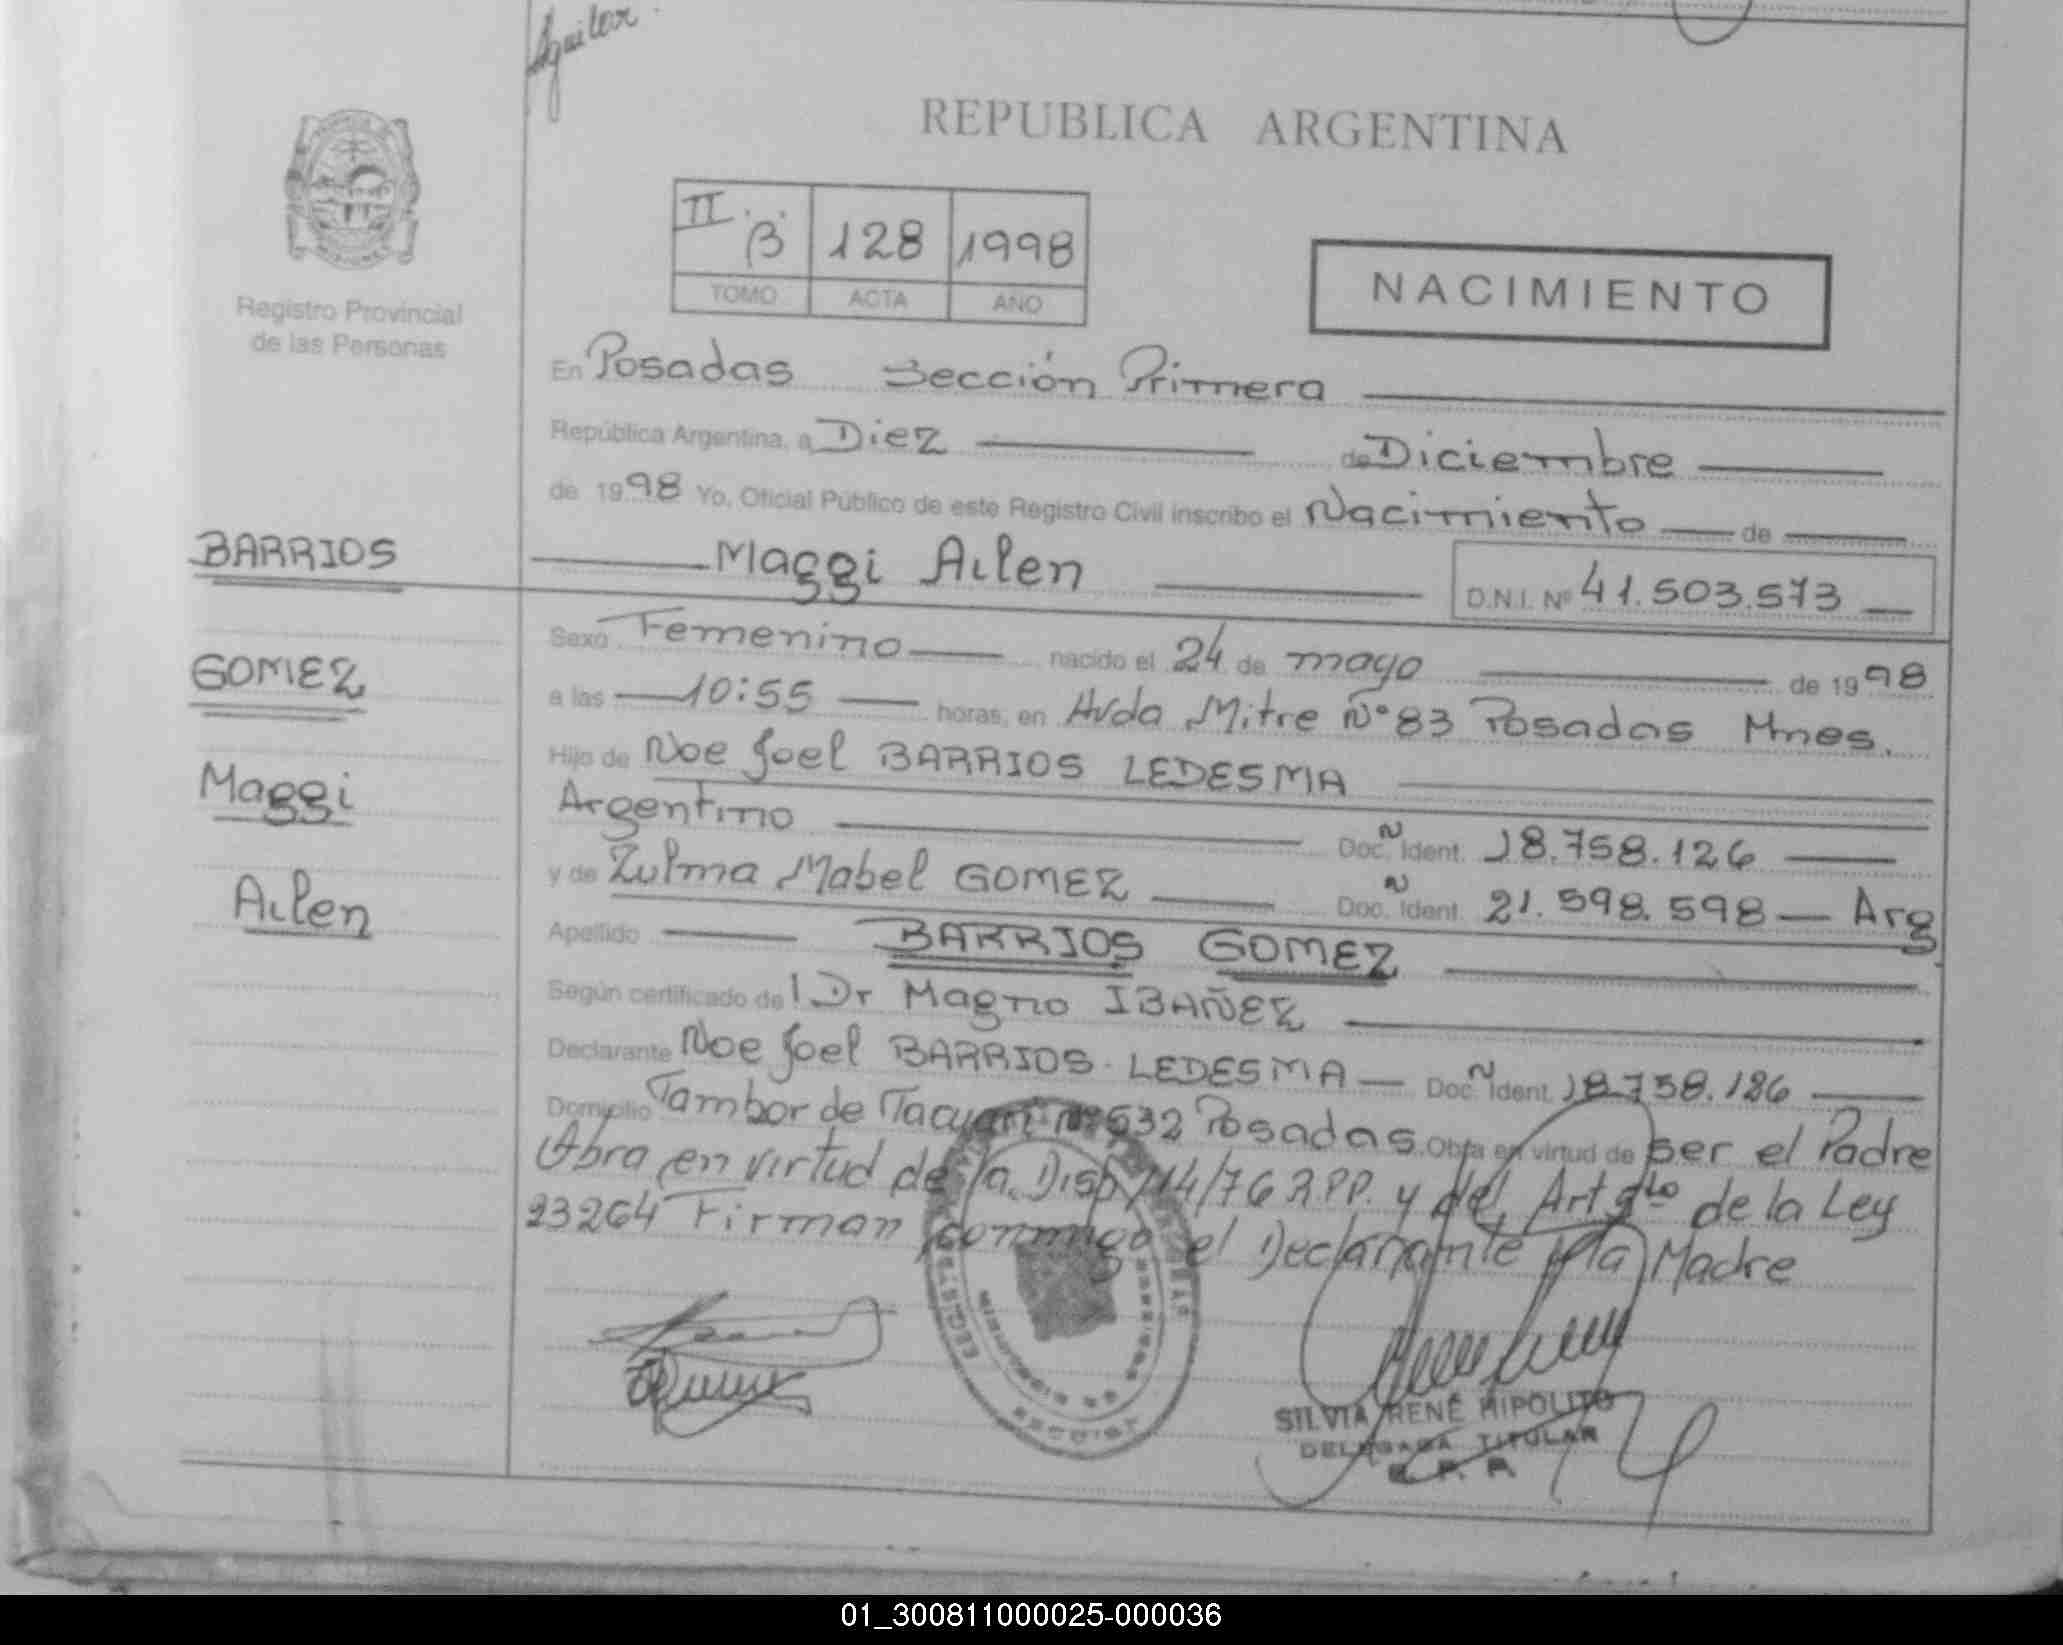 Aguilar
REPUBLICA ARGENTINA
II B 128 1998
TOMO ACTA AÑO
NACIMIENTO
Registro Provincial
de las Personas
En Posadas Sección Primera
República Argentina, a Diez de Diciembre
de 1998 Yo, Oficial Público de este Registro Civil inscribo el Nacimiento de
BARRIOS
Maggi Ailen D.N.I. Nº 41.503.573
Sexo Femenino nacido el 24 de mayo de 1998
GOMEZ
a las 10:55 horas, en Avda Mitre Nº 83 Posadas Mnes.
Hijo de Noe Joel BARRIOS LEDESMA
Maggi
Argentino Doc. Ident. 18.758.126
y de Zulma Mabel GOMEZ Doc. Ident. 21.598.598 Arg
Ailen
Apellido BARRIOS GOMEZ
Según certificado del Dr Magno IBAÑEZ
Declarante Noe Joel BARRIOS LEDESMA Doc. Ident. 18.758.126
Domicilio Tambor de Tacuari Nº 532 Posadas. Obra en virtud de ser el Padre
Obra en virtud de la Disp 114/76 R.P.P. y del Art 5to de la Ley
23264 Firman conmigo el Declarante y la Madre
SILVIA RENÉ HIPOLITO
DELEGADA TITULAR
R. P. P.
01_300811000025-000036